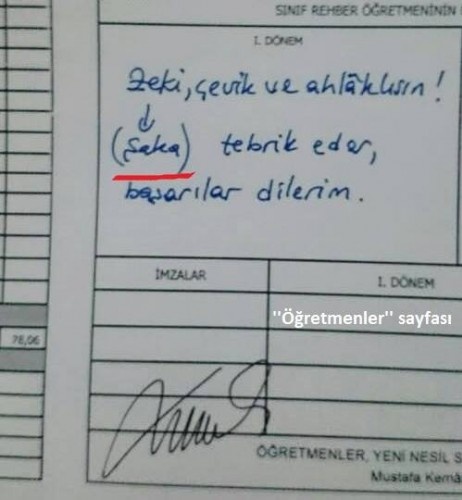 SINIF REHBER ÖĞRETMENİNİN
I. DÖNEM
Zeki, çevik ve ahlâklısın!
(şaka) tebrik eder,
başarılar dilerim.
İMZALAR
I. DÖNEM
"Öğretmenler" sayfası
76,06
ÖĞRETMENLER, YENİ NESİL S
Mustafa Kemâ